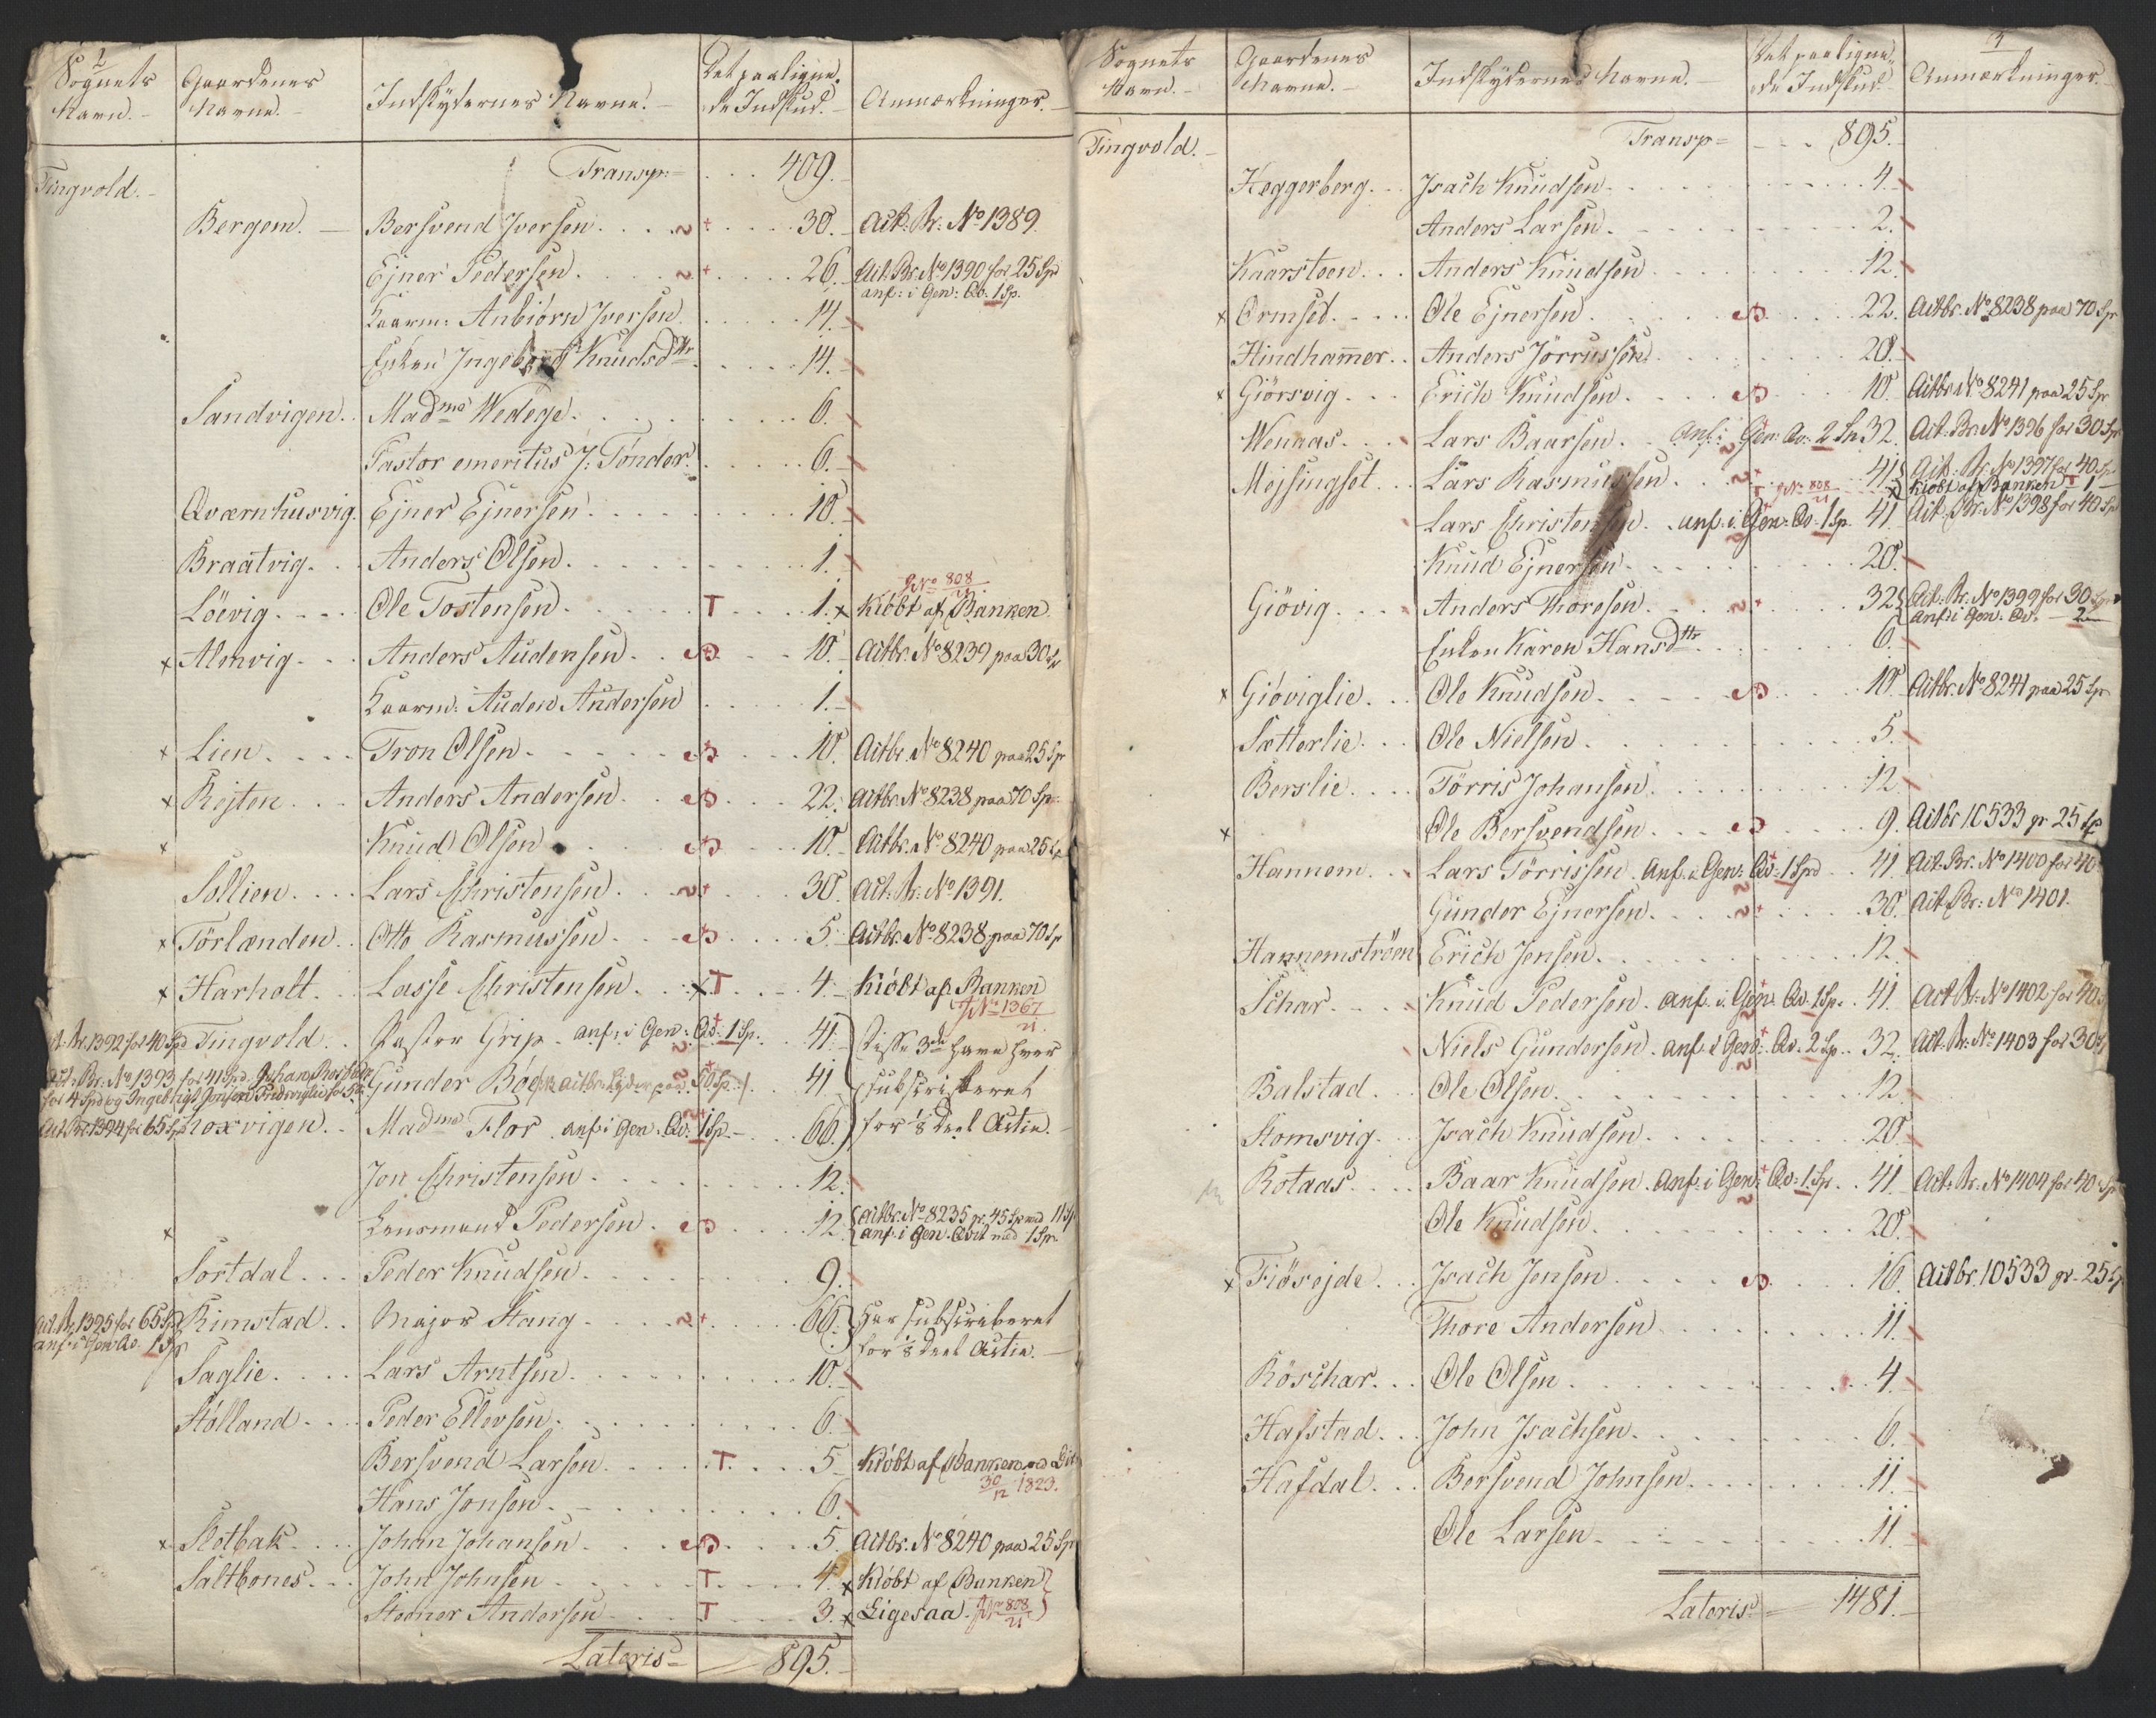 2
Sognets Navn. Gaardenes Navne. Indskydernes Navne. Det paaligne- de Indskud. Anmærkninger.
Tingvold. Transp: 409.
Bergem. Bersvend Iversen 2 + 30. Act: Br: No 1389.
Ejner Pedersen 2 + 26. Act. Br. No 1390 for 25 Sp
anf: i Gen: Qv: 1 Sp.
Kaarm: Anbiörn Iversen 14.
Enken Ingeborg Knudsdttr 14.
Sandvigen. Madme Wedege. 6.
Pastor emeritus J: Tönder. 6.
Qværnhusvig. Ejner Ejnersen 10.
Braatvig. Anders Olsen. 1.
J No 808/21
Löevig. Ole Tostensen. T 1. x Kiöbt af Banken
x Almvig. Anders Audensen. 10. Actbr. No 8239 paa 30 Sp
Kaarm: Auden Andersen 1.
x Lien. Tron Olsen. 10. Actbr. No 8240 paa 25 Sp
x Rejten. Anders Andersen. 22. Actbr. No 8238 paa 70 Sp.
x Knud Olsen 10. Actbr. No 8240 paa 25 Sp
Sollien. Lars Christensen. 2 + 30. Act: Br: No 1391.
x Törlænden. Otto Rasmussen. 5. Actbr. No 8238 paa 70 Sp
x Harhalt. Lasse Christensen. x T 4. Kiöbt af Banken
J No 1367/21.
Act. Br. 1392 for 40 Spd Tingvold. Pastor Grip. anf: i Gen: Qv: 1 Sp. 41. Disse 3de have hver
Act. Br. No 1393 for 41 Spd. Gunder Böe 41. subscriberet
Act Br 1394 for 65 Sp Roxvigen. Madme Flor. anf: i Gen. Qv: 1 Sp. 66. for 1/8 Deel Actie.
Jon Christensen 12.
x Lensmand Pedersen. 12. Actbr. No 8235 pr. 45 Sp med 11 Sp
anf. i Gen. Qvit med 1 Sp.
Sortdal. Peder Knudsen. 9.
Act. Br. 1395 for 65 Sp Rimstad. Major Stang 2 + 66. Har subscriberet
anf: i Gen Qv. 1 Sp for 1/8 Deel Actie.
Saglie. Lars Arntsen. 10.
Stölland. Peder Ellevsen. 6.
Bersvend Larsen. T 5. Kiöbt af Banken
30/12 1823.
Hans Jonsen. 6.
x Slotbak. Johan Johansen. 5. Actbr. No 8240 paa 25 Sp
Saltbones. John Johnsen T 4. x Kiöbt af Banken
Steener Andersen T 3. x Ligesaa J No 808/21
Lateris 895.
3
Sognets Navn. Gaardenes Navne. Indskydernes Navne. Det paaligne- de Indskud. Anmærkninger.
Tingvold. Transp 895.
Heggerberg. Isach Knudsen. 4.
Anders Larsen. 2.
Kaarsteen. Anders Knudsen 12.
x Ormset. Ole Ejnersen. 22. Actbr. No 8238 paa 70 Sp
Hindhamer. Anders Jörrissen. 20.
x Giörsvig. Erich Knudsen. 10. Actbr No 8241 paa 25 Sp
Wenaas. Lars Baarsen. Anf: i Gen: Qv: 2 Sp 32. Act. Br. No 1396 for 30 Sp
Mejsingset. Lars Rasmussen. 2 + 41. Act: Br. No 1397 for 40 Sp
T J No 808/21 x Kiöbt af Banken T 1
Lars Christensen. anf. i Gen. Qv. 1 Sp. 41. Act. Br. No 1398 for 40 Sp
Knud Ejnersen 20.
Giövig. Anders Thoresen. 2 + 32. Act. Br. No 1399 for 30 Sp
anf: i Gen. Qv. 2
Enken Karen Hansdttr 6.
x Giöviglie. Ole Knudsen. 10. Actbr. No 8241 paa 25 Sp
Sætterlie. Ole Nielsen. 5.
Berslie. Törris Johansen. 12.
x Ole Bersvendsen. 9. Actbr 10533 pr 25 Sp
Hannem. Lars Törrissen. Anf. i Gen: Qv: 1 Spd 41. Act. Br. No 1400 for 40
Gunder Ejnersen. 2 + 30. Act. Br: No 1401.
Hannemströen Erich Jensen. 12.
Schar. Knud Pedersen. anf. i Gen. Qv. 1 Sp. 41. Act Br. No 1402 for 40 S
Niels Gundersen. anf. i Gen. Qv. 2 Sp. 32. Act. Br. No 1403 for 30 S
Balstad. Ole Olsen. 12.
Stomsvig. Isach Knudsen 20.
Rotaas. Baar Knudsen. Anf: i Gen: Qv: 1 Sp. 41. Act. Br. No 1404 for 40 Sp
Ole Knudsen 20.
x Fiösejde. Isach Jensen 16. Actbr. 10533 pr. 25 Sp
Thore Andersen 11.
Röschar. Ole Olsen. 4.
Hafstad. John Isachsen. 6.
Hafdal. Bersvend Johnsen. 11.
Ole Larsen. 11.
Lateris 1481.